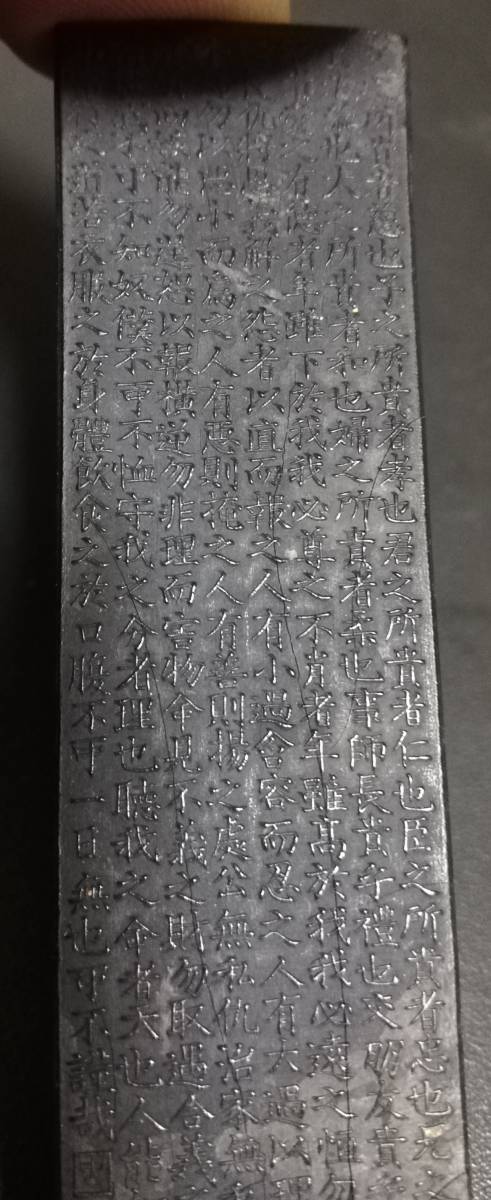 所貴者慈也子之所貴者孝也君之所貴者仁也臣之所貴者忠也兄之
也人之所貴者和也婦之所貴者柔也事師長貴乎禮也交朋友貴
有德者年雖下於我我必尊之不肖者年雖高於我我必遠之慎勿
仇將恩我解之怨者以直而報之人有小過含容而忍之人有大過以理
勿以惡小而為之人有惡則掩之人有善則揚之處公無私仇治家無
勿逞怒以報橫逆勿非理而害物命見不義之財勿取遇合義
不可不知奴僕不可不恤守我之分者理也聽我之命者天也人能
若衣服之於身體飲食之於口腹不可一日無也可不